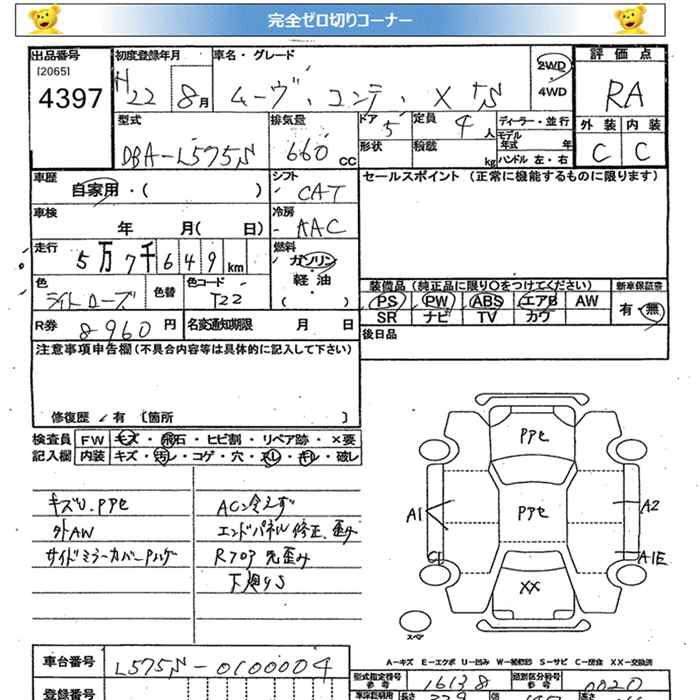 完全ゼロ切りコーナー
出品番号 初度登録年月 車名・グレード 2WD 評価点
[2065]
4397 H22 8月 ムーヴ・コンテ・X +S 4WD RA
型式 排気量 ドア 5 定員 4人 ディーラー・並行 外装 内装
DBA-L575S 660cc 形状 積載 kg モデル年式 年 C C
ハンドル 左・右
車歴 シフト セールスポイント (正常に機能するものに限ります)
自家用・( ) CAT
車検 冷房
年 月( 日) AAC
走行 燃料
5万7千649km ガソリン
軽・油
( )
色 色替 色コード 装備品 (純正品に限り○をつけてください) 新車保証書
ライトローズ T22 PS PW ABS エアB AW 有・無
SR ナビ TV カワ
R券 8960円 名変通知期限 月 日 後日品
注意事項申告欄(不具合内容等は具体的に記入して下さい)
修復歴 / 有 [箇所 ]
検査員 FW キズ・飛石・ヒビ割・リペア跡・×要
記入欄 内装 キズ・汚レ・コゲ・穴・スレ・キレ・破レ
キズU.PPセ ACン冷えず
外AW エンドパネル修正、歪み
サイドミラーカバーPハゲ Rフロア先歪み
下廻りS
PPセ
A1 PPセ A2
C1 A1E
XX
スペア
A-キズ E-エクボ U-凹み W-補修跡 S-サビ C-腐食 XX-交換済
車台番号 L575S-0100004
型式指定番号 16138 類別区分番号 0020
登録番号